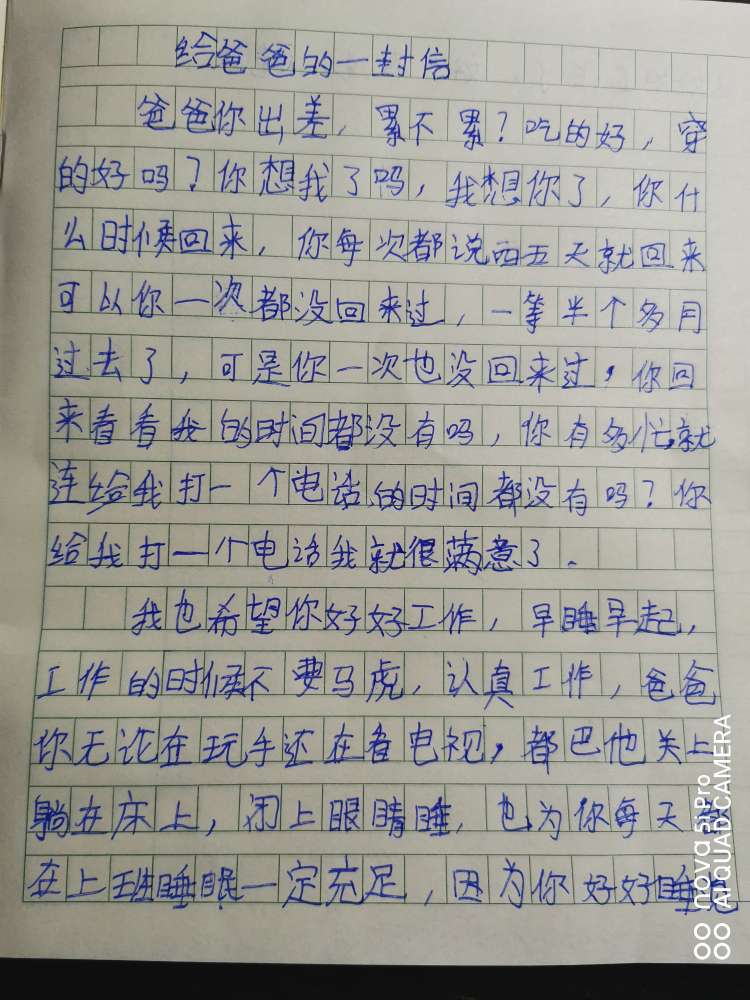 给爸爸的一封信
爸爸你出差，累不累？吃的好，穿
的好吗？你想我了吗，我想你了，你什
么时候回来，你每次都说西五天就回来
可以你一次都没回来过，一等半个多月
过去了，可是你一次也没回来过，你回
来看看我的时间都没有吗，你有多忙就
连给我打一个电话的时间都没有吗？你
给我打一个电话我就很满意了.
我也希望你好好工作，早睡早起，
工作的时候不要马虎，认真工作，爸爸
你无论在玩手还在看电视，都巴他关上
躺在床上，闭上眼睛睡，也为你每天
在上班睡眠一定充足，因为你好好睡觉
nova 5 Pro
AI QUAD CAMERA